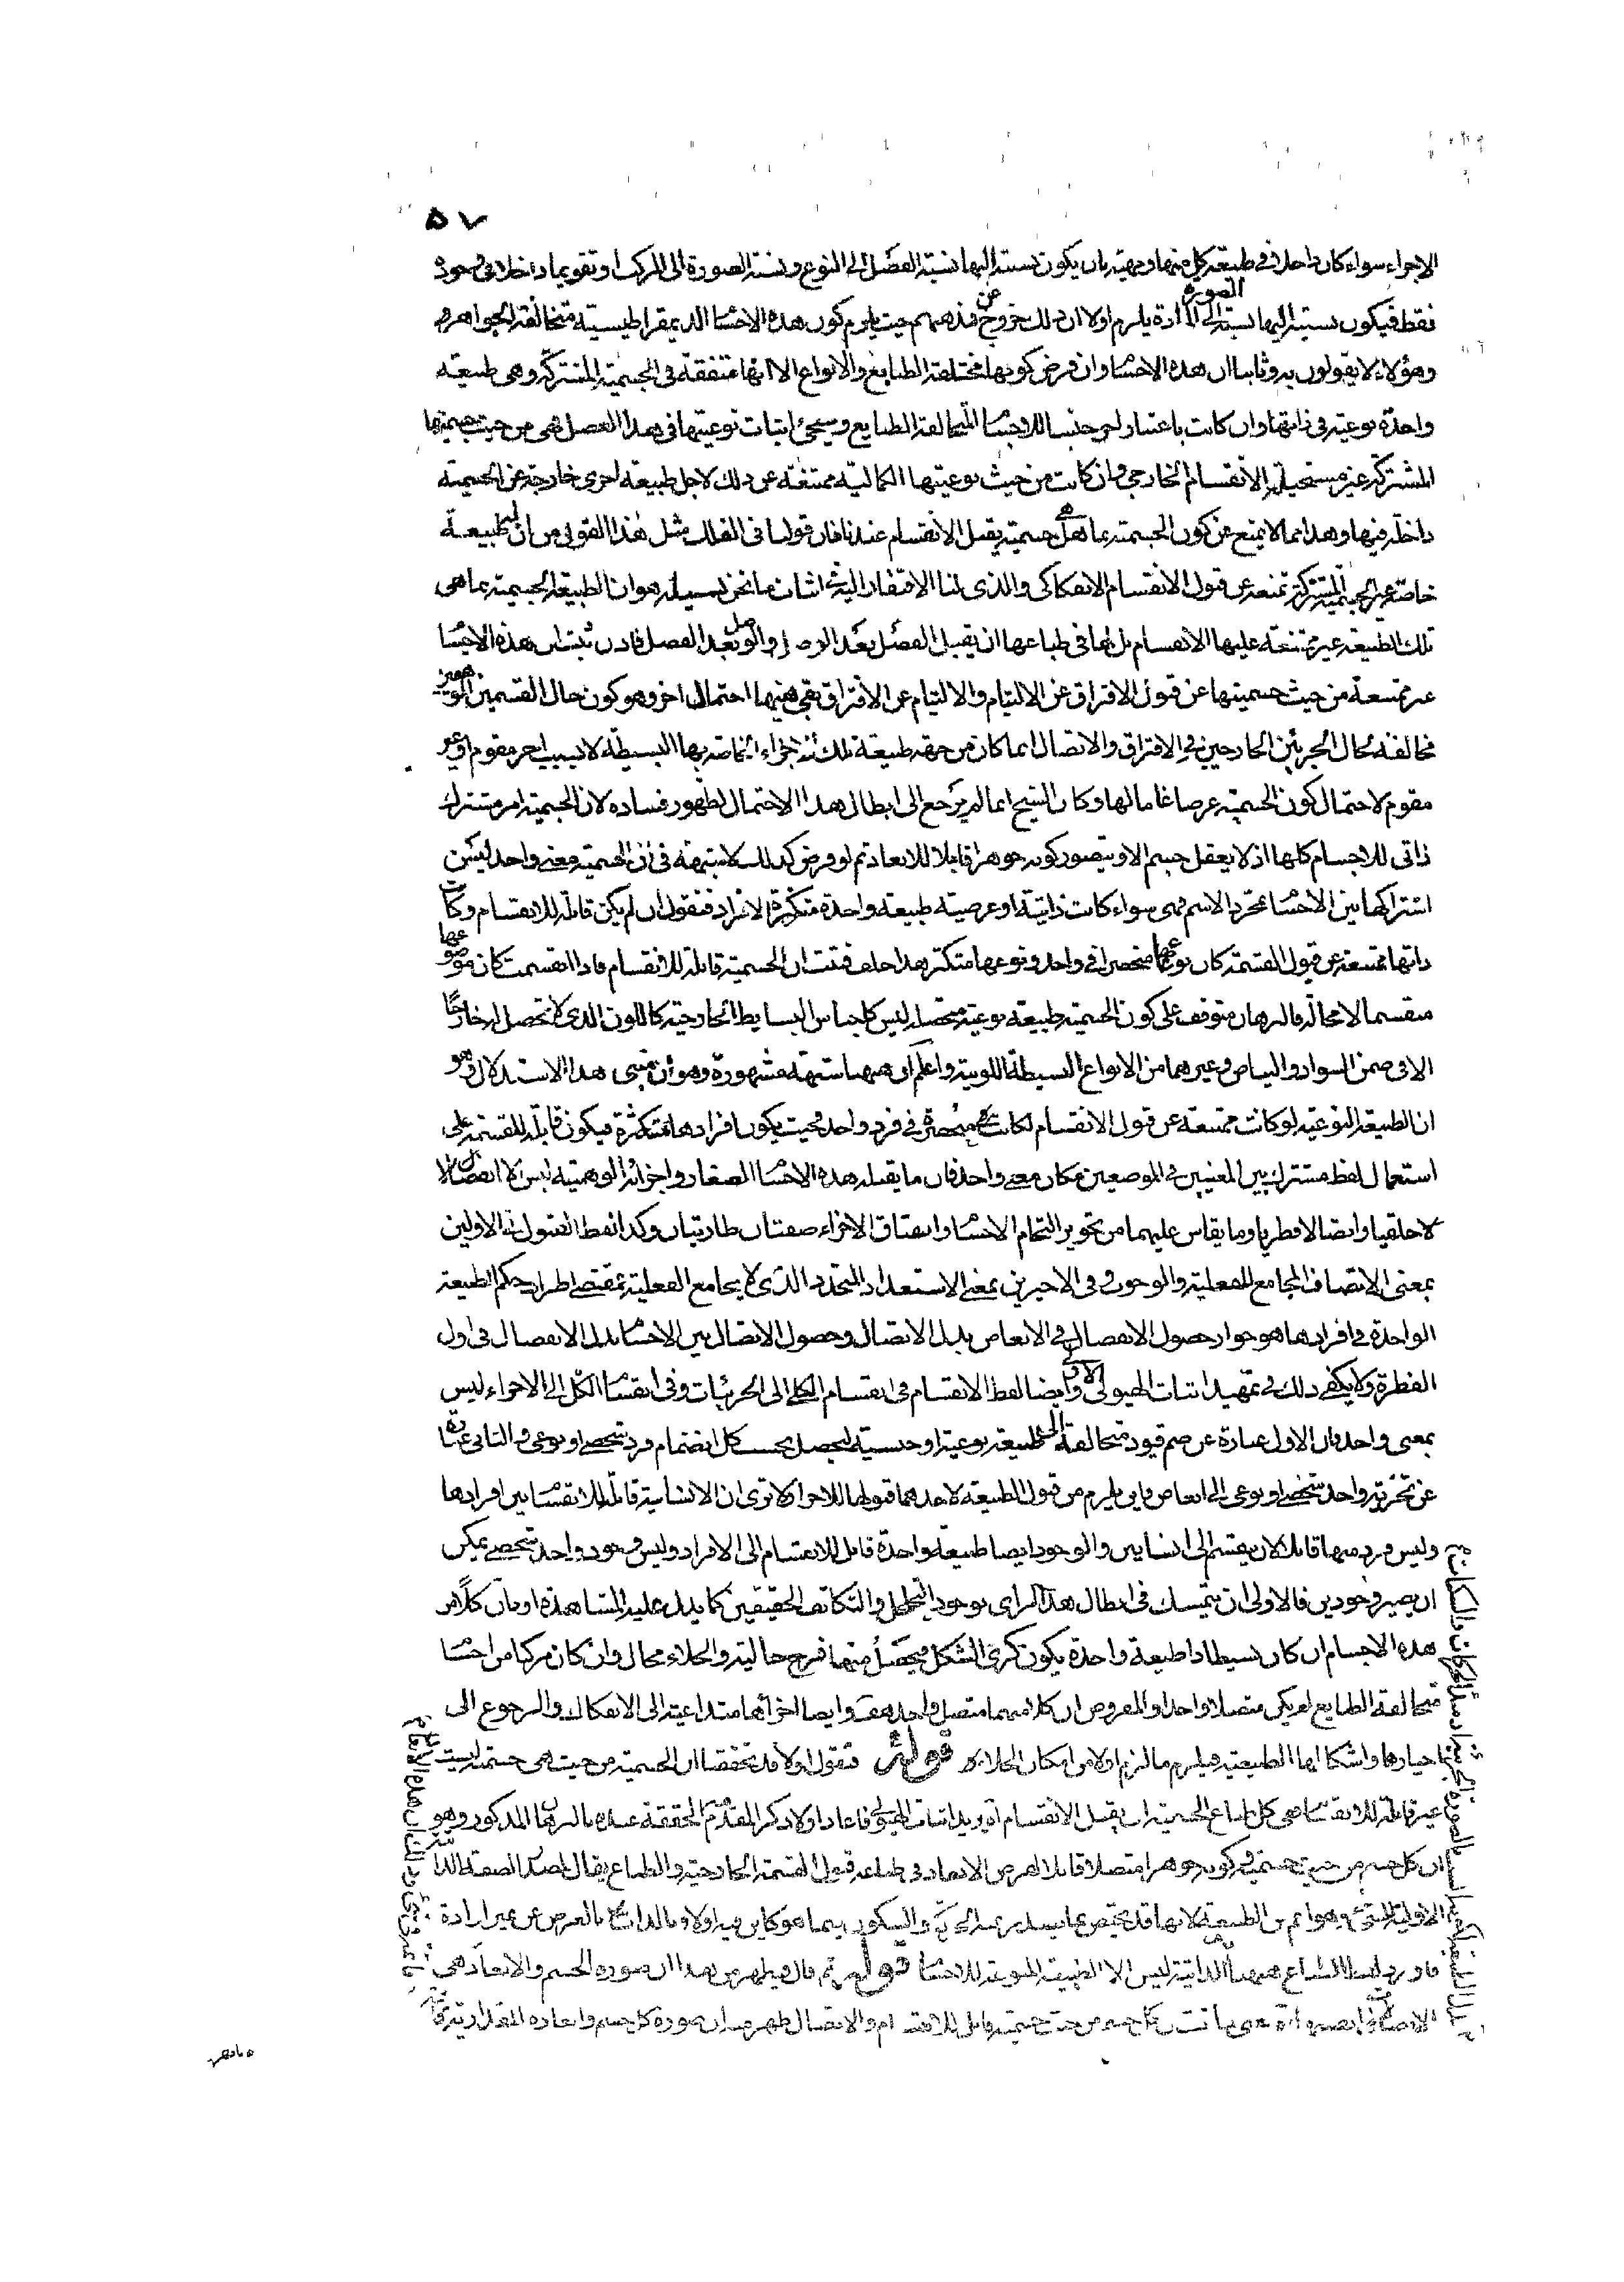 ٥٧
الاجزاء سواء كان داخلا فى طبيعة كل منها ومهيته بان يكون نسبته اليها نسبة الفصل الى النوع ونسبة الصورة الى المركب او تقويما داخلا فى وجوده
فقط فيكون نسبته اليها نسبة الصورة الى المادة يلزم اولا ان ذلك خروج عن مذهبهم حيث يلزم كون هذه الاجسام الديمقراطيسية متخالفة الجواهر و
وهؤلاء لا يقولون به وثانيا ان هذه الاجسام وان فرض كونها مختلفة الطبايع والانواع الا انها متفقة فى الجسمية المشتركة وهى طبيعة
واحدة نوعية فى ذاتها وان كانت باعتبار اخر جنسا للاجسام المتخالفة الطبايع وسيجئ اثبات نوعيتها فى هذا الفصل فهى من حيث جسميتها
المشتركة غير مستحيلة الانقسام الخارجى وان كانت من حيث نوعيتها الكمالية ممتنعة عن ذلك لاجل طبيعة اخرى خارجة عن الجسمية
داخلة فيها وهذا مما لا يمنع من كون الجسمية بما هى جسمية يقبل الانقسام عندنا فان قولنا فى الفلك مثل هذا القول من ان له طبيعة
خاصة غير الجسمية المشتركة تمنعه عن قبول الانقسام الانفكاكى والذى لنا الافتقار اليه فى اثبات ما نحن بسبيله هو ان الطبيعة الجسمية بما هى
تلك الطبيعة غير ممتنعة عليها الانقسام بل لها فى طباعها ان يقبل الفصل بعد الوصل والوصل بعد الفصل فاذن ثبت ان هذه الاجسام
غير ممتنعة من حيث جسميتها عن قبول الافتراق عن الالتيام والالتيام عن الافتراق بقى ههنا احتمال اخر وهو كون حال القسمين الوهميين
مخالفة لحال الجزئين الخارجين فى الافتراق والاتصال انما كان من جهة طبيعة تلك الاجزاء الخاصة بها البسيطة لا بسبب اخر مقوم او غير
مقوم لاحتمال كون الجسمية عرضا عاما لها وكان الشيخ انما لم يرجع الى ابطال هذا الاحتمال لظهور فساده لان الجسمية امر مشترك
ذاتى للاجسام كلها اذ لا يعقل جسم الا ويتصور كونه جوهرا قابلا للابعاد ثم لو فرض كذلك لا شبهة فى ان الجسمية معنى واحد ليس
اشتراكها بين الاجسام بمجرد الاسم فهى سواء كانت ذاتية او عرضية طبيعة واحدة متكثرة الافراد فنقول ان لم يكن قابلة للانقسام وكانت
ذاتها ممتنعة عن قبول القسمة كان نوعها منحصرا فى واحد ونوعها متكثر هذا خلف فثبت ان الجسمية قابلة للانقسام فاذا انقسمت كان موضوعها
منقسما لا محالة فالبرهان متوقف على كون الجسمية طبيعة نوعية متحصلة ليس كاجناس البسايط الخارجية كاللون الذى لا تحصل له خارجا
الا فى ضمن السواد والبياض وغيرهما من الانواع البسيطة اللونية واعلم ان ههنا شبهة مشهورة وهو ان مبنى هذا الاستدلال وهو
ان الطبيعة النوعية لو كانت ممتنعة عن قبول الانقسام لكانت منحصرة فى فرد واحد فحيث يكون افرادها متكثرة فيكون قابلة للقسمة على
استعمال لفظ مشترك بين المعنيين فى الموضعين مكان معنى واحد فان ما يقبله هذه الاجسام الصغار واجزائها الوهمية ليس الا انفصالا
لا خلقيا واتصالا فطريا وما يقاس عليهما من تجويز التحام الاجسام وافتراق الاجزاء صفتان طاريتان وكذا لفظ القبول فى الاولين
بمعنى الاتصاف المجامع للفعلية والوجوب وفى الاخيرين بمعنى الاستعداد المتجدد الذى لا يجامع الفعلية بمقتضى اطراد حكم الطبيعة
الواحدة فى افرادها هو جواز حصول الانفصال فى الابعاض بدل الاتصال وحصول الاتصال بين الاجسام بدل الانفصال فى اول
الفطرة ولا يكفى ذلك فى تمهيد اثبات الهيولى الاولى وايضا لفظ الانقسام فى انقسام الكلى الى الجزئيات وفى انقسام الكل الى الاجزاء ليس
بمعنى واحد فان الاول عبارة عن ضم قيود متخالفة الى طبيعة نوعية او جنسية ليحصل بحسب كل انضمام فرد شخصى او نوعى والثانى عبارة
عن تجزية واحد شخصى او نوعى الى ابعاض فاين يلزم من قبول الطبيعة لاحدهما قبولها للاخر الا ترى ان الانسانية قابلة للانقسام بين افرادها
وليس فرد منها قابلا لان ينقسم الى انسانين والوجود ايضا طبيعة واحدة قابل للانقسام الى الافراد وليس وجود واحد شخصى يمكن
ان يصير وجودين فالاولى ان يتمسك فى ابطال هذا الراى بوجود التخلخل والتكاثف الحقيقين كما يدل عليه المشاهدة او بان كلا من
هذه الاجسام ان كان بسيطا ذا طبيعة واحدة يكون كرى الشكل فيحصل منها فرج خالية والخلاء محال وان كان مركبا من اجسام
متخالفة الطبايع لم يكن متصلا واحدا والمفروض ان كلا منهما متصل واحد هف وايضا اجزائها متداعية الى الانفكاك والرجوع الى
احيازها واشكالها الطبيعية فيلزم ما لزم اولا من امكان الخلاء قوله فنقول اولا قد تحققنا ان الجسمية من حيث هى جسمية ليست
غير قابلة للانقسام ففى كل طباع الجسمية ان يقبل الانقسام اه يريد اثبات الهيولى فاعاد اولا ذكر المقدمة المحققة عنده بالبرهان المذكور وهو
ان كل جسم من حيث جسميته وكونه جوهرا متصلا قابلا لفرض الابعاد فى طباعه قبول القسمة الخارجية والطباع يقال لمصدر الصفة الذاتية
الاولية للشئ وهو اعم من الطبيعة لانها قد يختص بما يصدر عنه الحركة والسكون فيما هو كاين فيه اولا وبالذات لا بالعرض من غير ارادة
الذاتية ليس الا الطبيعة النوعية للاجسام قوله ثم قال فيظهر من هذا ان صورة الجسم والابعاد هى
كل جسم من حيث جسميته قابل للانقسام والاتصال ظهر منه ان صورة كل جسم وابعاده